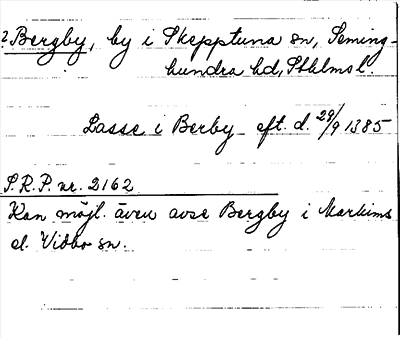 ? Bergby, by i Skepptuna sn, Seming-
hundra hd, Sthlmsl.
Lasse i Berby eft. d. 29/9 1385
S.R.P. nr. 2162
Kan möjl. även avse Bergby i Markims
el. Vidbo sn.